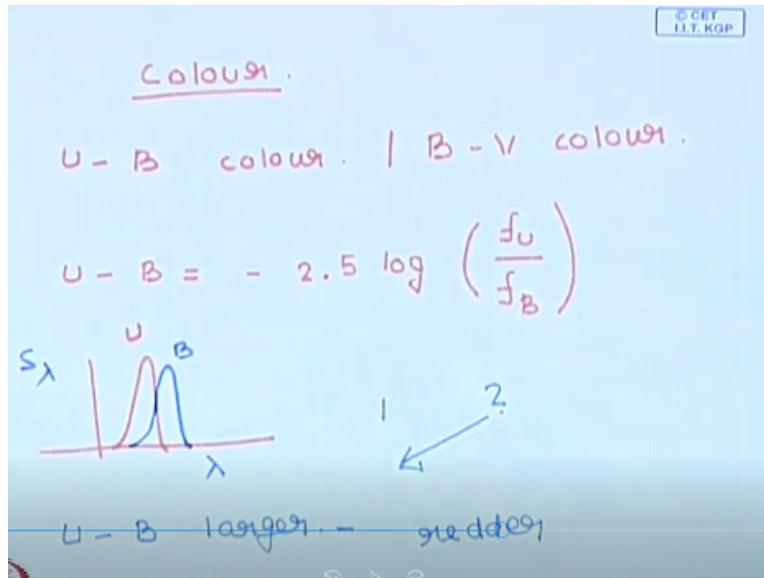 © CET
I.I.T. KGP
Colour.
U - B colour. | B - V colour.
U - B = - 2.5 log ( fU / fB )
U
B
Sλ
1 2
λ
U - B larger. - redder